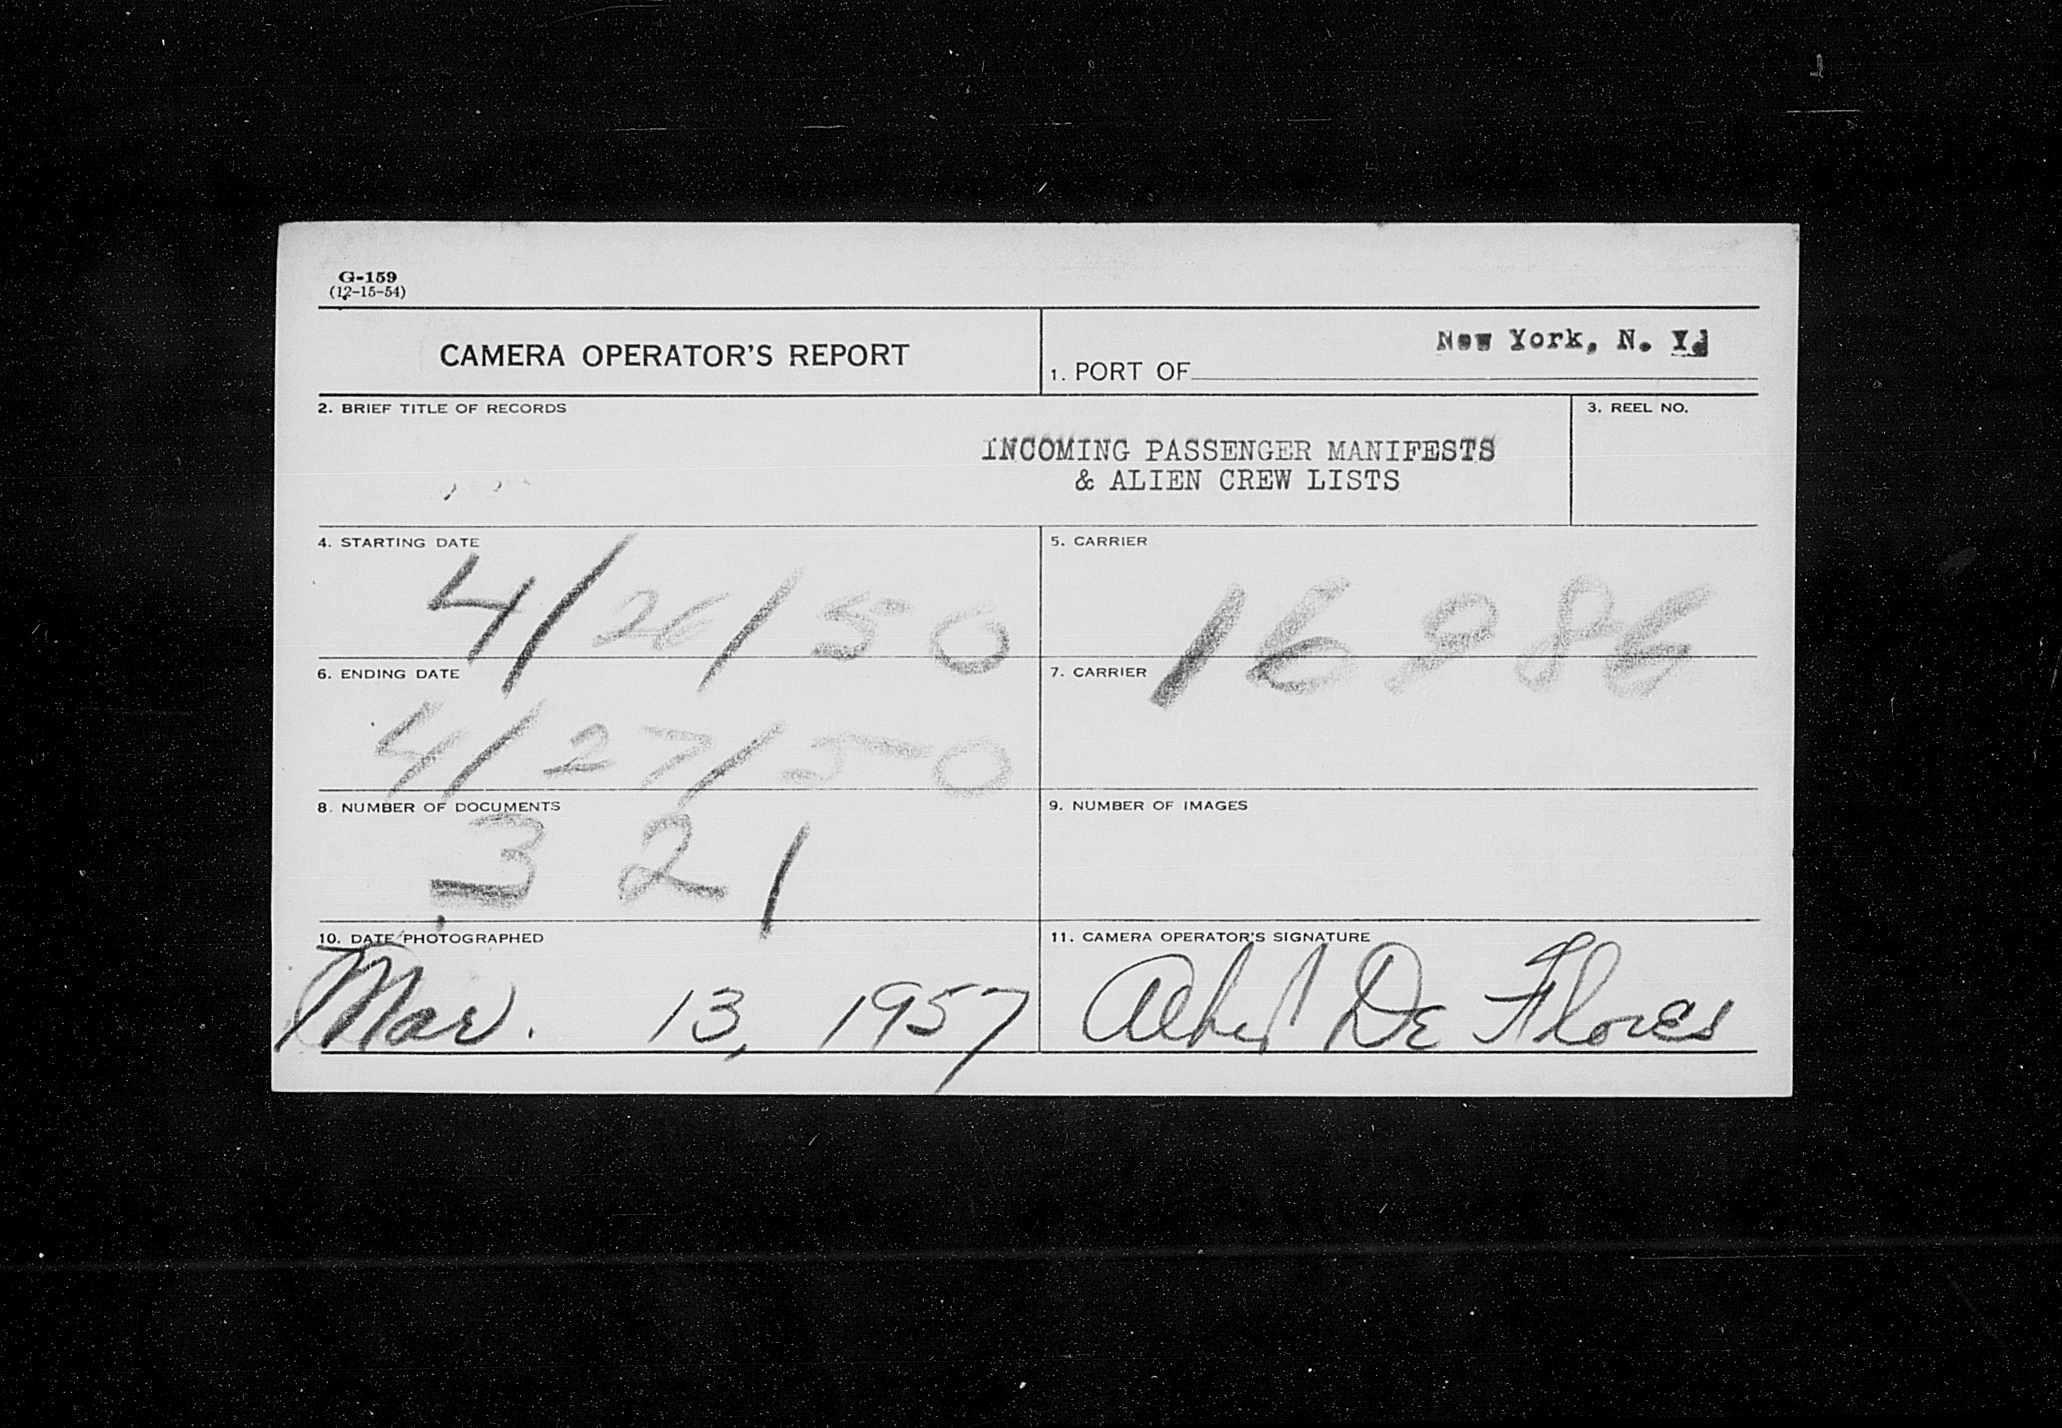 G-159
(12-15-54)
CAMERA OPERATOR'S REPORT
1. PORT OF New York, N. Y.
2. BRIEF TITLE OF RECORDS
INCOMING PASSENGER MANIFESTS
& ALIEN CREW LISTS
3. REEL NO.
4. STARTING DATE
4/26/50
5. CARRIER
16986
6. ENDING DATE
4/27/50
7. CARRIER
8. NUMBER OF DOCUMENTS
321
9. NUMBER OF IMAGES
10. DATE PHOTOGRAPHED
Mar. 13, 1957
11. CAMERA OPERATOR'S SIGNATURE
Albert De Flores